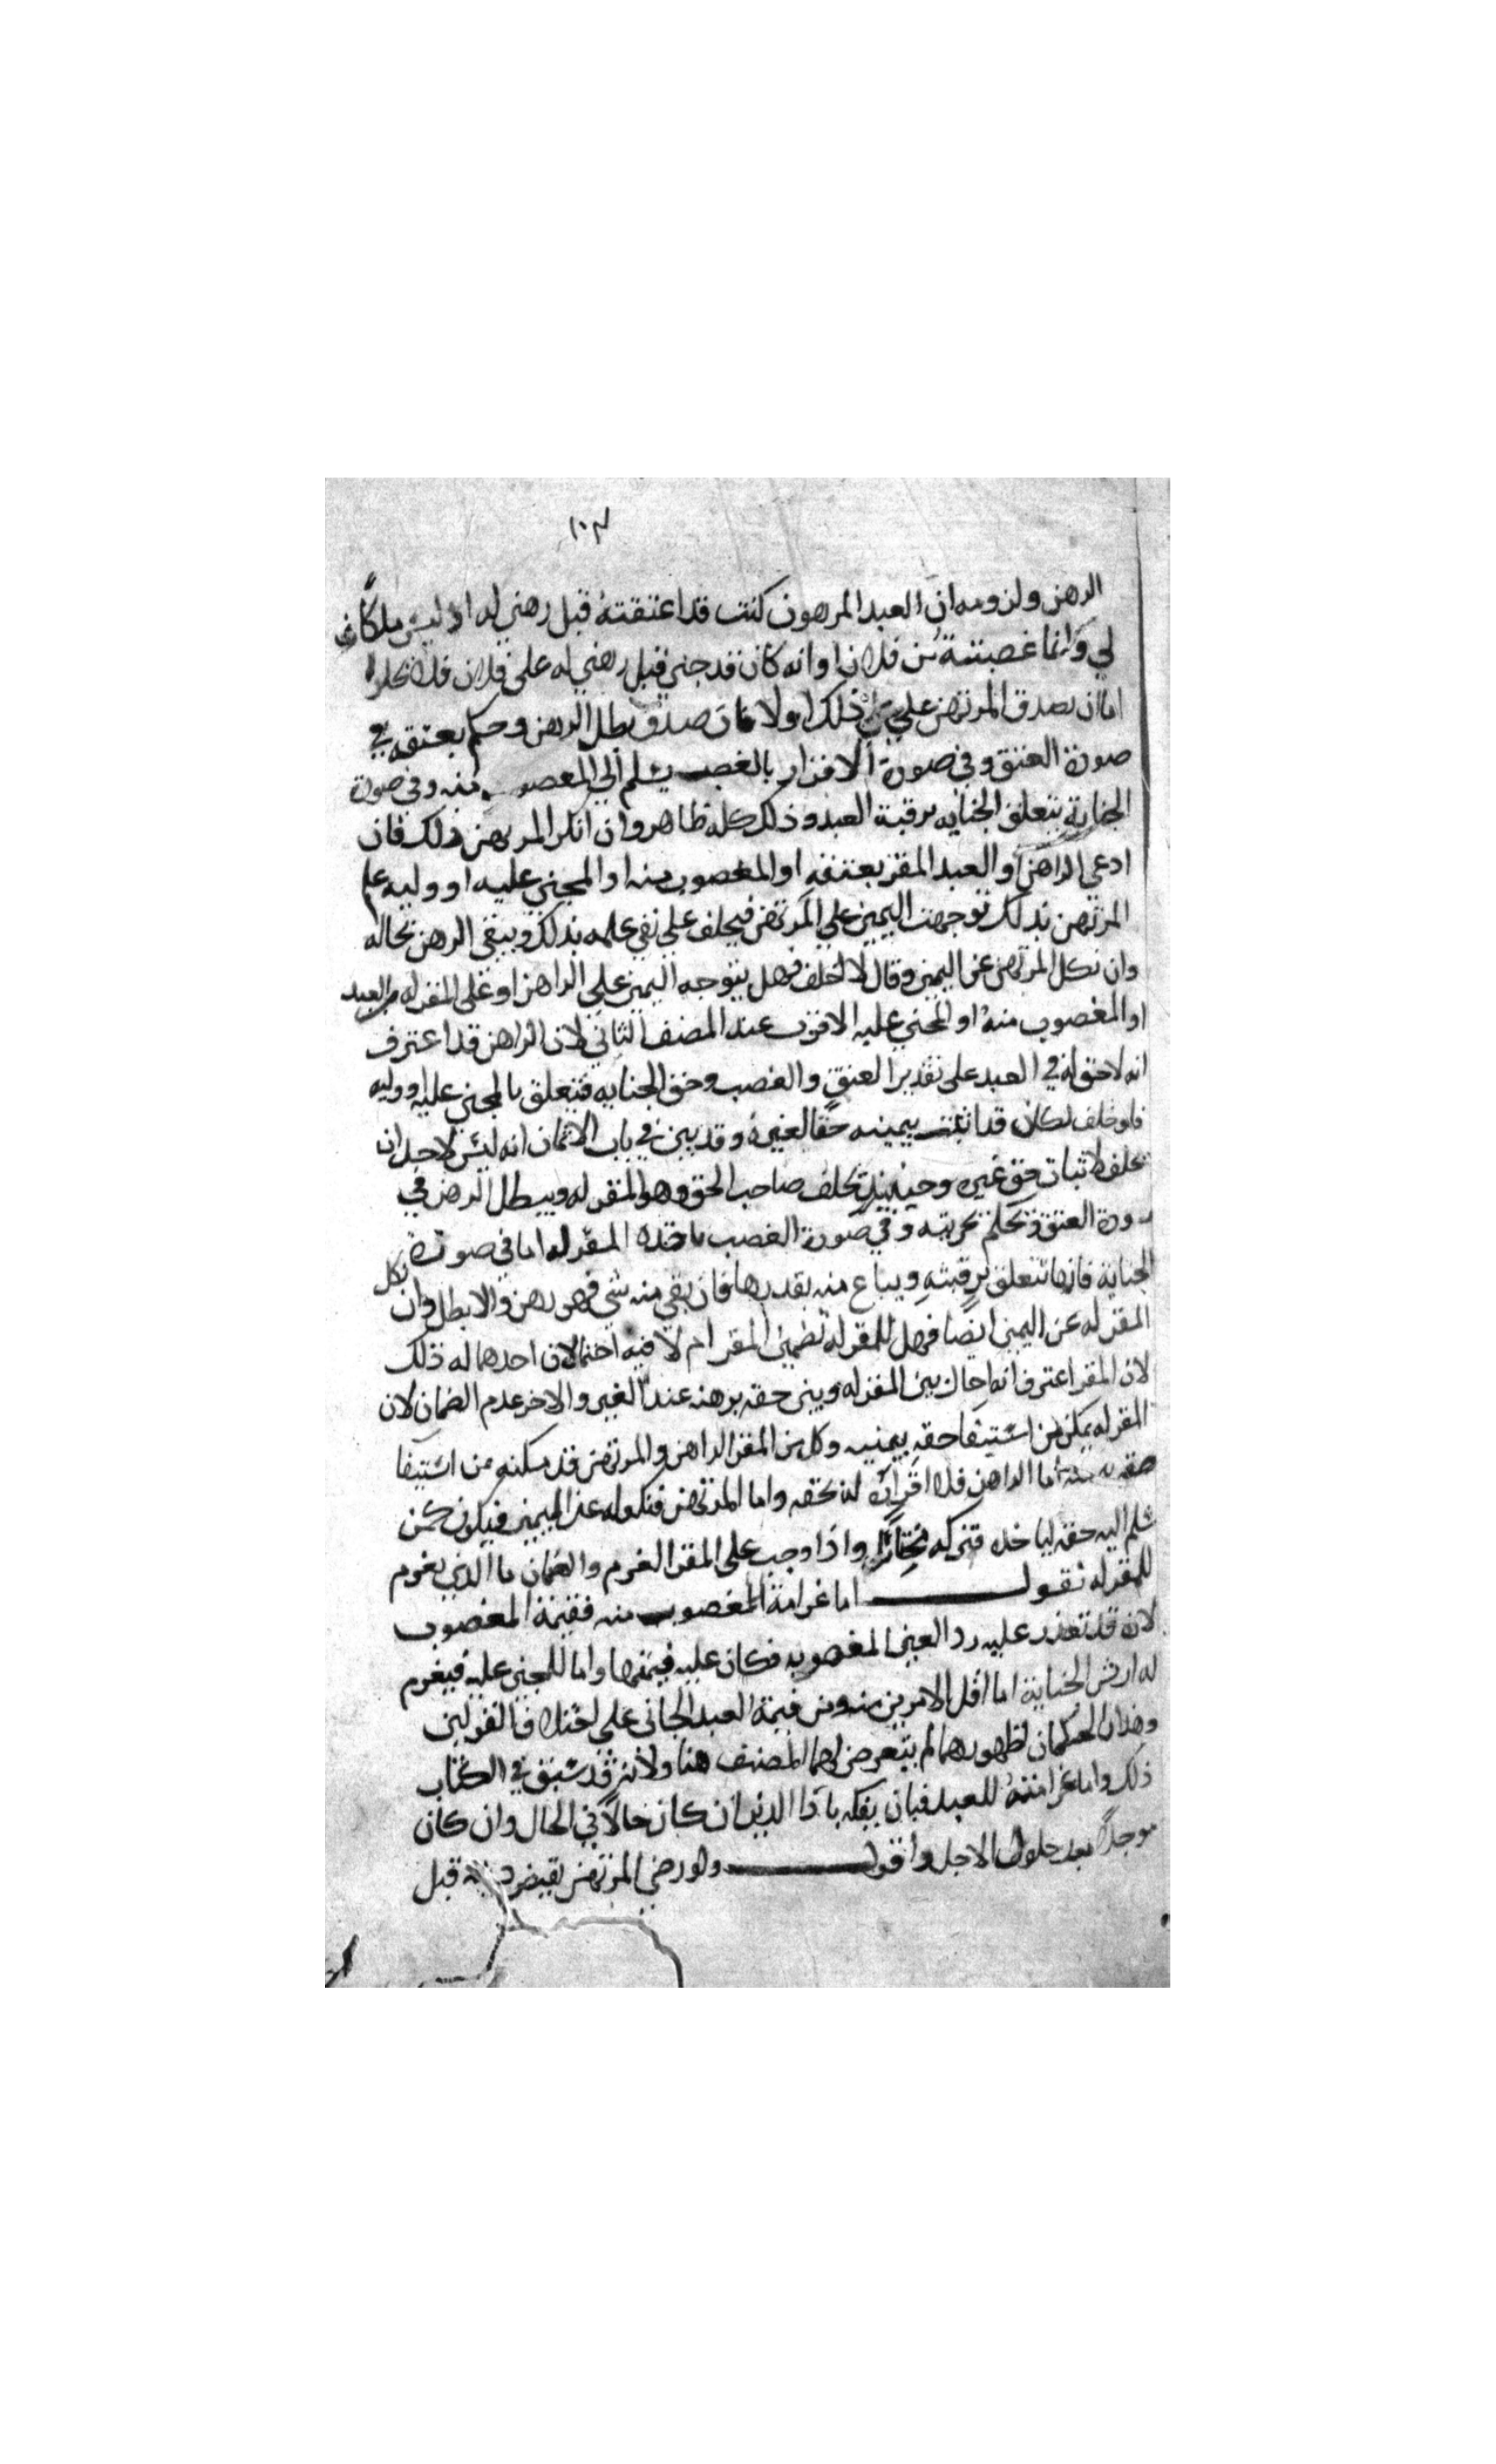 ١٠٣
الرهن ولزومه ان العبد المرهون كنت قد اعتقته قبل رهني له او ليس ملكا
لي وانما غصبته من فلان او انه كان قد جنى قبل رهني له على فلان فلا يخلوا
اما ان يصدق المرتهن على ذلك اولا فان صدق بطل الرهن وحكم بعتقه في
صورة العتق وفي صورة الاقرار بالغصب يسلم الى المغصوب منه وفي صورة
الجناية يتعلق الجنايه برقبة العبد وذلك كله ظاهر وان انكر المرتهن ذلك فان
ادعى الراهن او العبد المقر بعتقه او المغصوب منه او المجني عليه او وليه علم
المرتهن بذلك توجهت اليمين على المرتهن فيحلف على نفي علمه بذلك ويبقى الرهن بحاله
وان نكل المرتهن عن اليمين وقال لا احلف فهل يتوجه اليمين على الراهن او على المقر له من العبد
او المغصوب منه او المجني عليه الاقرب عند المصنف الثاني لان الراهن قد اعترف
انه لا حق له في العبد على تقدير العتق والغصب وحق الجنايه فيتعلق بالمجني عليه او وليه
فلو حلف لكان قد اثبت بيمينه حقا لغيره وقد بين في باب الايمان انه ليس لاحد ان
يحلف لاثبات حق غيره وحينئذ يحلف صاحب الحق وهو المقر له ويبطل الرهن في
صورة العتق ويحكم بحريته وفي صورة الغصب ياخذه المقر له اما في صورة
الجناية فانها تتعلق برقبته ويباع منه بقدرها فان بقي منه شي فهو رهن والا بطل وان نكل
المقر له عن اليمين ايضا فهل للمقر له تضمين المقر ام لا فيه احتمالان احدهما له ذلك
لان المقر اعترف انه احال بين المقر له وبين حقه برهنه عند الغير والاخر عدم الضمان لان
المقر له يمكن من استيفا حقه بيمينه وكل من المقر الراهن والمرتهن قد مكنه من استيفا
حقه اما الراهن فلاقراره له بحقه واما المرتهن فنكوله عن اليمين فيكون كمن
سلم اليه حقه لياخذه فتركه مختارا واذا وجب على المقر الغرم والضمان ما الذي يغرم
للمقر له نقول اما غرامة المغصوب منه فقيمة المغصوب
لانه قد تعذر عليه رد العين المغصوبه فكان عليه قيمتها واما للمجني عليه فيغرم
له ارش الجناية اما اقل الامرين منه ومن قيمة العبد الجاني على اختلاف القولين
وهذان الحكمان لظهورهما لم يتعرض لهما المصنف هنا ولانه قد سبق في الكتاب
ذلك واما غرامته للعبد فبان يفكه باداء الدين ان كان حالا في الحال وان كان
موجلا بعد حلول الاجل واقول ولو رضي المرتهن بقبض دينه قبل